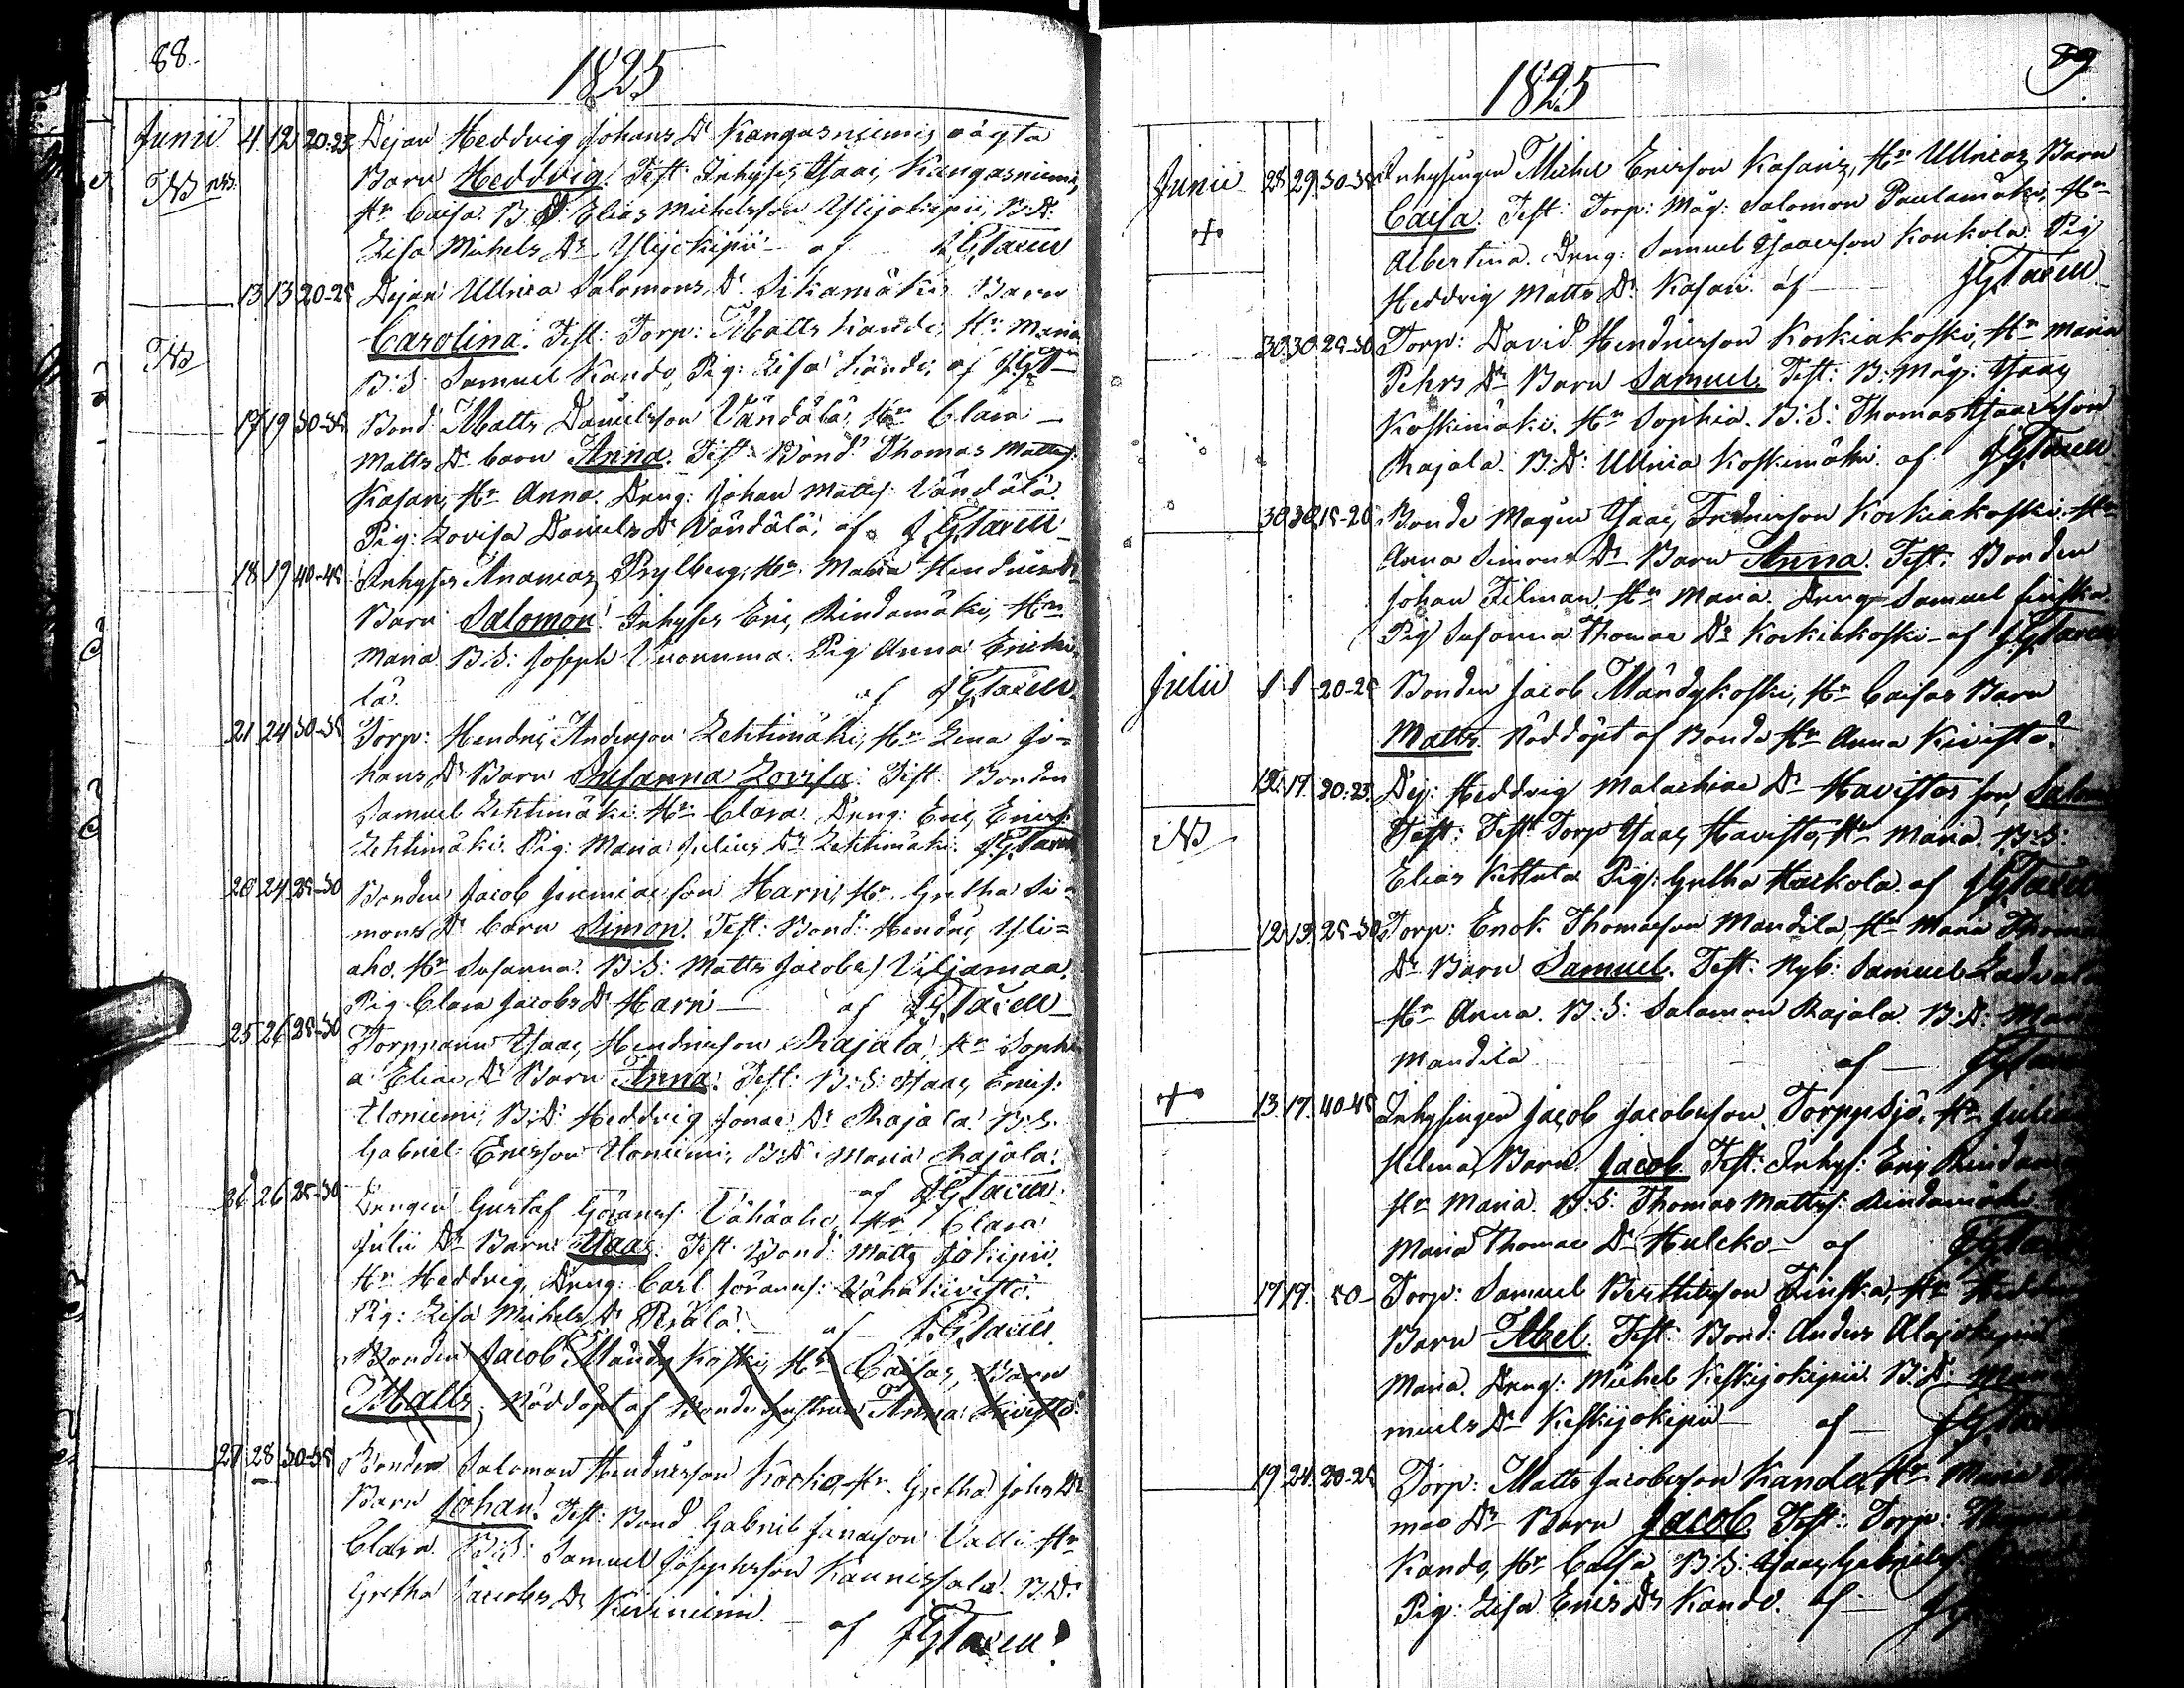 88.
1825
Junii 4. 12 20-23 Dejan Heddvig Johans Dr Kangasniemis oägta
NB Barn Heddvig. Test: Inhyses Isaac Kangasniemi,
Hr Caisa. B:S: Elias Michelsson Ylijokipii, B:D:
Lisa Michels Dr Ylijokipii af J.G. Tacell
13 13 20-25 Dejan Ullrica Salomons Dr Sikamäkis Barn
NB Carolina. Test: Torp: Matts Kando, Hr Maria
B:S: Samuel Kando, Pig: Lisa Kando; af J.G.T
17 19 30-35 Bond: Matts Danielsson Vändälä, Hr Clara
Matts Dr barn Anna. Test: Bond: Thomas Mattss:
Kasari, Hr Anna. Dreng: Johan Mattss: Vändälä.
Pig: Lovisa Daniels Dr Vändälä; af J.G. Tacell
18 19 40-45 Inhyses Ananias Prylberg, Hr Maria Hendrics Dr
Barn Salomon. Inhyses Eric Rindamäki, Hr
Maria B:S: Joseph Vuorenma. Pig Anna Ericki-
lä. af J.G. Tacell
21 24 30-35 Torp: Hendric Andersson Lehtimäki, Hr Lena Jo=
hans Dr Barn Susanna Lovisa. Test: Bonden
Samuel Lehtimäki Hr Clara. Dreng: Eric Erics:
Lehtimäki. Pig: Maria Julius Dr Lehtimäki. J.G. Tacell
20 24 25-30 Bonden Jacob Jeremiaeson Harri, Hr Gretha Si=
mons Dr barn Simon. Test: Bond: Hendric Yli=
aho. Hr Susanna. B:S: Matts Jacobss: Viljamaa.
Pig Clara Jacobs Dr Harri af J.G. Tacell
25 26 25-30 Torpparen Isaac Hendricsson Rajala, Hr Sophi
a Eliae Dr Barn Anna. Test: B:S: Isaac Erics:
Uoniemi, B:D: Heddvig Jonae Dr Rajala. B:S.
Gabriel Ericsson Uoniemi, B:D: Maria Rajala.
af J.G. Tacell
26 26 25-30 Drengen Gustaf Göranss: Vähäaho, Hr Clara
Julii Dr Barn Isaac. Test: Bond: Matts Jokipii.
Hr Heddvig, Dreng: Carl Göranss: Vähäkivistö.
Pig: Lisa Michels Dr Perälä. af J.G. Tacell
Bonden Jacob Mändykoski, Hr Caisas, Barn
Matts, Nöddöpt af Bonde hustrun Anna Kivistö
27 28 30-35 Bonden Salomon Hendricsson Korko, Hr Gretha Johs Dr
Barn Johan. Test: Bond Gabriel Jonaeson Valli Hr
Clara. B:S: Samuel Josephsson Kaunissala. B:D:
Gretha Jacobs Dr Kiviniemi. af J.G. Tacell
89
1825
Junii 28 29 30-35 Inhysingen Michel Ericson Kasaris, Hr Ullricas Barn
+ Caisa. Test: Torp: Måg: Salomon Paulamäki, Hr
Albertina. Dreng: Samuel Isaacsson Konkola. Pig
Heddvig Matts Dr Kasari. af J.G. Tacell
30 30 25-30 Torp: David Hendricson Korkiakoski, Hr Maria
Pehrs Dr Barn Samuel. Test: B: Måg: Isaac
Koskimäki. Hr Sophia. B:S: Thomas Isaacsson
Rajala. B:D: Ullrica Koskimäki. af J.G. Tacell
30 30 15-20 Bonde Mågen Isaac Fredricson Korkiakoski. Hr
Anna Simons Dr Barn Anna. Test: Bonden
Johan Filman, Hr Maria. Dreng Samuel Finska.
Pig Susanna Thomae Dr Korkiakoski - af J.G. Tacell
Julii 1 1 20-25 Bonden Jacob Mändykoski, Hr Caisas Barn
Matts. Nöddöpt af Bonde Hr Anna Kivistö.
12 17. 20-23. Dej: Heddvig Malachiae Dr Havistos son, Salom
NB Test: Test: Torp Isaac Havisto, Hr Maria. B:S:
Elias Kettula Pig: Gretha Harkola. af J.G. Tacell
12 13 25-30 Torp: Enok Thomasson Mandila, Hr Maria Thoma
Dr Barn Samuel. Test: Nyb: Samuel
Hr Anna. B:S: Salomon Rajala. B:D:
Mandila af J.G. Tacell
+ 13 17. 40-45 Inhysingen Jacob Jacobsson Torppsjö. Hr
Helena, Barn Jacob. Test: Inhys: Eric Rindam
Hr Maria. B:S: Thomas Mattss: Rindamäki.
Maria Thomae Dr Hulcko af J.G.
17 17. 50- Torp: Samuel Berthelsson Finska, Hr
Barn Abel. Test: Bond: Anders Alajokipii
Maria. Dreng: Michel Keskijokipii. B:D:
muels Dr Keskijokipii af J.G.
19 24. 20-25 Torp: Matts Jacobsson Kando, Hr Maria
mae Dr Barn Jacob. Test: Torp:
Kando, Hr Caisa. B:S: Isaac Gabrielss:
Pig: Lisa Erics Dr Kando. af